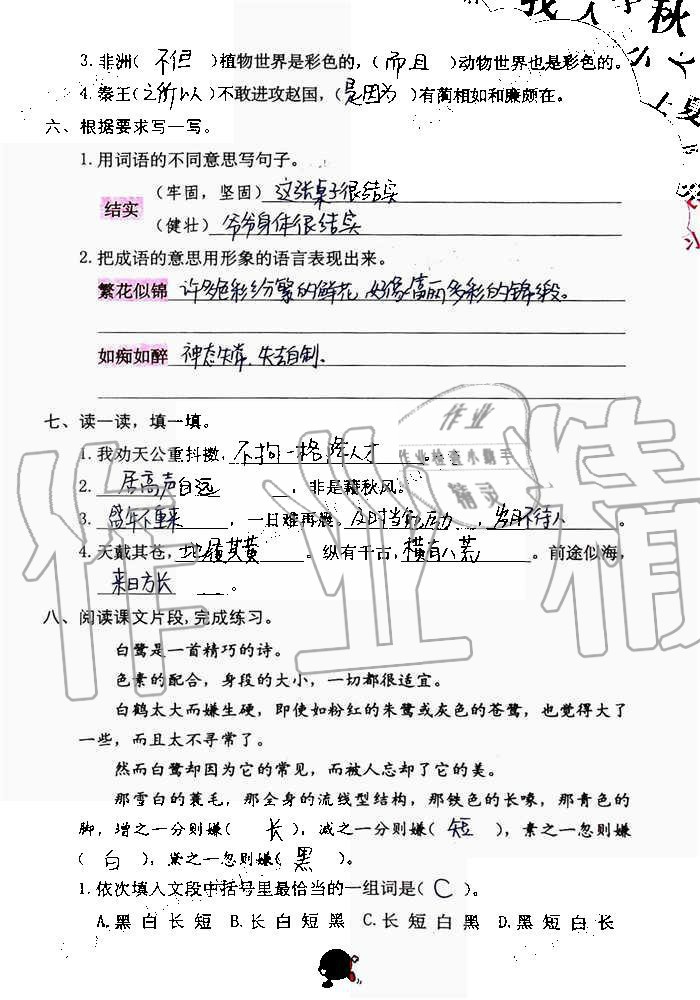 3. 非洲( 不但 )植物世界是彩色的，( 而且 )动物世界也是彩色的。
4. 秦王( 之所以 )不敢进攻赵国，( 是因为 )有蔺相如和廉颇在。
六、根据要求写一写。
1. 用词语的不同意思写句子。
结实
（牢固，坚固）这张桌子很结实
（健壮）爷爷身体很结实
2. 把成语的意思用形象的语言表现出来。
繁花似锦 许多色彩纷繁的鲜花，好像富丽多彩的锦缎。
如痴如醉 神态失常，失去自制。
七、读一读，填一填。
1. 我劝天公重抖擞，不拘一格降人才。
2. 居高声自远，非是藉秋风。
3. 盛年不重来，一日难再晨。及时当勉励，岁月不待人。
4. 天戴其苍，地履其黄。纵有千古，横有八荒。前途似海，
来日方长。
八、阅读课文片段，完成练习。
白鹭是一首精巧的诗。
色素的配合，身段的大小，一切都很适宜。
白鹤太大而嫌生硬，即使如粉红的朱鹭或灰色的苍鹭，也觉得大了
一些，而且太不寻常了。
然而白鹭却因为它的常见，而被人忘却了它的美。
那雪白的蓑毛，那全身的流线型结构，那铁色的长喙，那青色的
脚，增之一分则嫌( 长 )，减之一分则嫌( 短 )，素之一忽则嫌
( 白 )，黛之一忽则嫌( 黑 )。
1. 依次填入文段中括号里最恰当的一组词是( C )。
A. 黑 白 长 短 B. 长 白 短 黑 C. 长 短 白 黑 D. 黑 短 白 长
作业
作业检查小助手
精灵
作业精